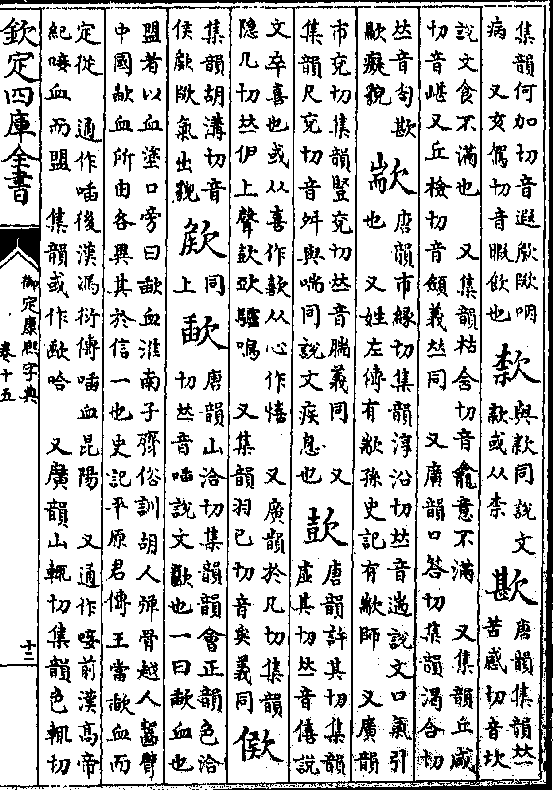 集韻何加切音遐歔欨呬
病 又亥駕切音暇飲也
㰲
與款同説文
款或从柰
歁
唐韻集韻𠀤
苦感切音坎
説文食不滿也 又集韻枯含切音龕意不滿 又集韻丘咸
切音嵁又丘檢切音㒽義𠀤同 又廣韻口答切集韻渴合切
𠀤音匌歁
歞癡貌
歂
唐韻市縁切集韻淳沿切𠀤音遄説文口氣引
也 又姓左傳有歂孫史記有歂師 又廣韻
市兖切集韻豎兖切𠀤音腨義同 又
集韻尺兖切音舛與喘同説文疾息也
歖
唐韻許其切集韻
虛其切𠀤音僖説
文卒喜也或从喜作歖从心作憘 又廣韻於几切集韻
隐几切𠀤伊上聲歖欭驢鳴 又集韻羽已切音矣義同
㰯
集韻胡溝切音
侯歔欨氣出貌
同
上
歃
唐韻山洽切集韻韻會正韻色洽
切𠀤音喢説文歠也一曰歃血也
盟者以血塗口旁曰歃血淮南子齊俗訓胡人彈骨越人齧臂
中國歃血所由各異其於信一也史記平原君傳王當歃血而
定從 通作喢後漢馮衍傳喢血昆陽 又通作唼前漢髙帝
紀唼血而盟 集韻或作歃哈 又廣韻山輒切集韻色輒切
欽定四庫全書
御定康熙字典
卷十五
十三